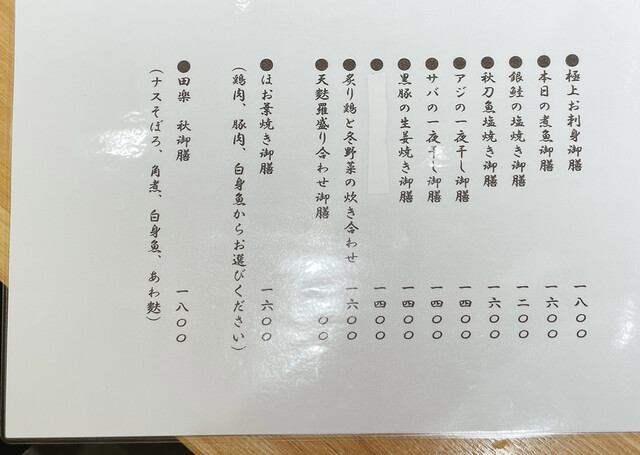 ●極上お刺身御膳 一八〇〇
●本日の煮魚御膳 一六〇〇
●銀鮭の塩焼き御膳 一二〇〇
●秋刀魚塩焼き御膳 一六〇〇
●アジの一夜干し御膳 一四〇〇
●サバの一夜干し御膳 一四〇〇
●黒豚の生姜焼き御膳 一四〇〇
● 一四〇〇
●炙り鶏と冬野菜の炊き合わせ 一六〇〇
●天麩羅盛り合わせ御膳 〇〇
●ほお葉焼き御膳 一六〇〇
(鶏肉、豚肉、白身魚からお選びください)
●田楽 秋御膳 一八〇〇
(ナスそぼろ、角煮、白身魚、あわ麩)